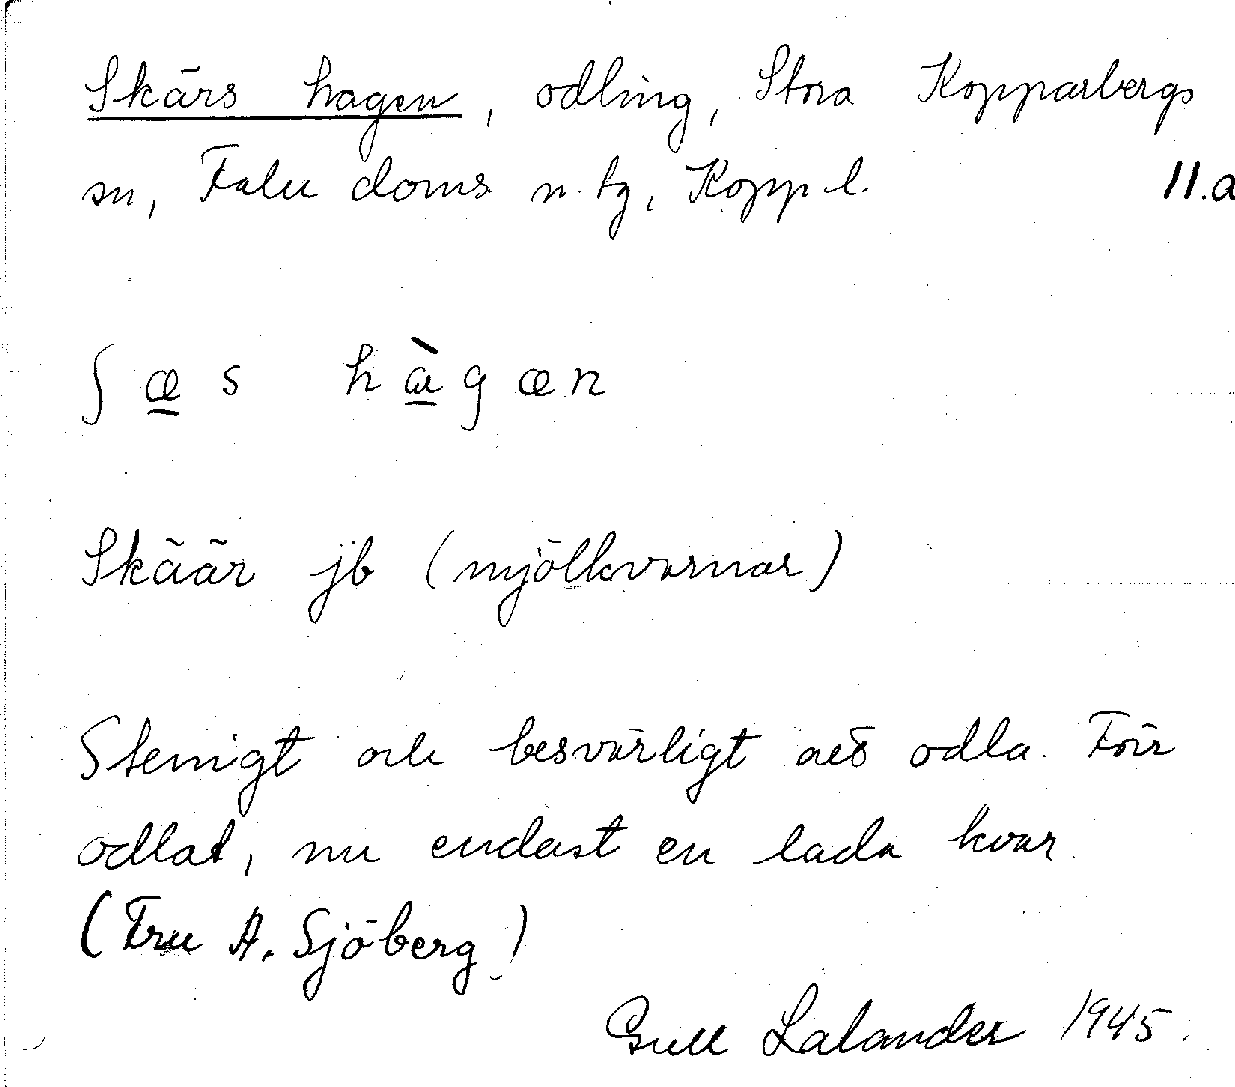 Skärs hagen, odling, Stora Kopparbergs
sn, Falu doms n. tg, Kopp. l. 11.a
ʃæs hàgæn
Skäär jb (mjölkvarnar)
Stenigt och besvärligt att odla. Förr
odlat, nu endast en lada kvar.
(Fru A. Sjöberg)
Gull Lalander 1945.